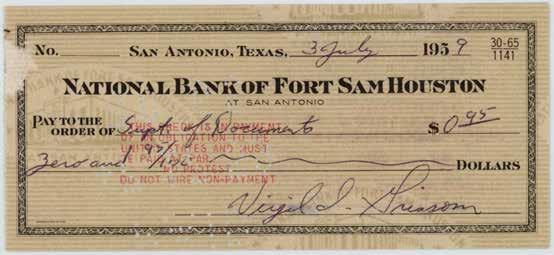 No. SAN ANTONIO, TEXAS, 3 July 1959 30-65
1141
NATIONAL BANK OF FORT SAM HOUSTON
AT SAN ANTONIO
PAY TO THE
ORDER OF Supt. of Documents $0.95
THIS CHECK IS IN PAYMENT
OF AN OBLIGATION TO THE
UNITED STATES AND MUST
BE PAID AT PAR
NO PROTEST
DO NOT WIRE NON-PAYMENT
Zero and 95/100 DOLLARS
Virgil I. Grissom